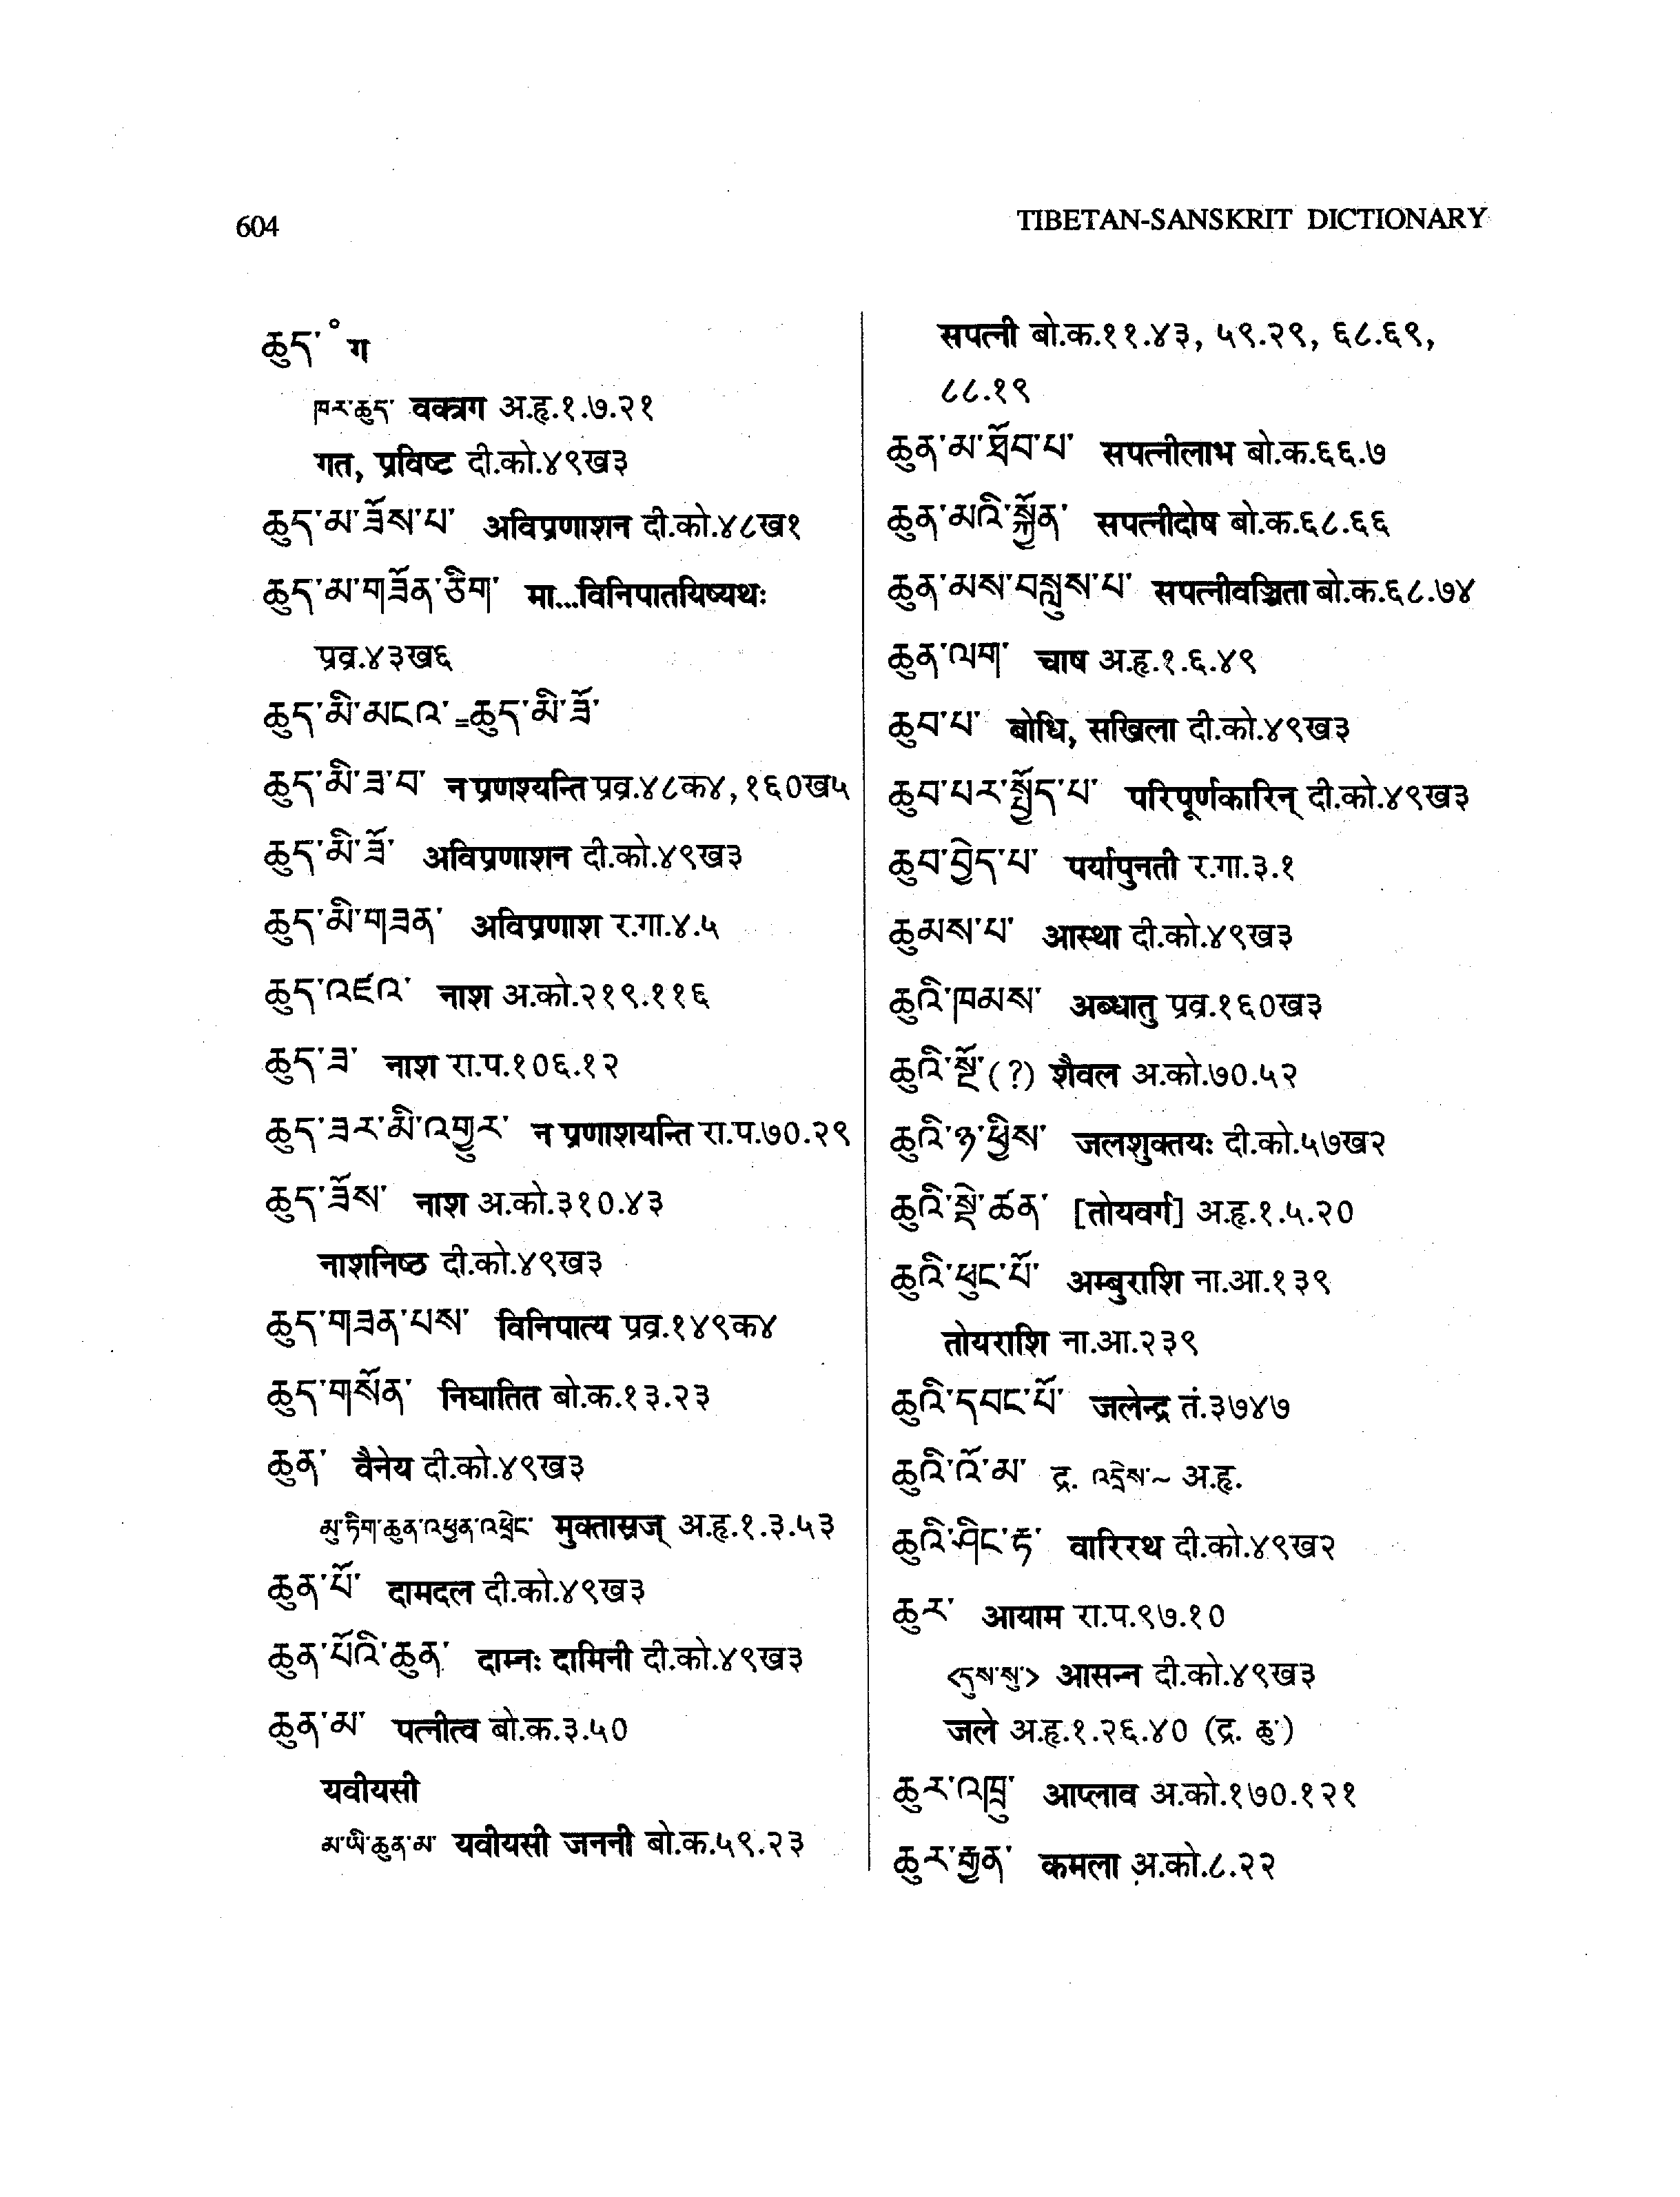 604
TIBETAN-SANSKRIT DICTIONARY
ཆུད་ °ग
ཁར་ཆུད་ वक्त्रग अ.हृ.१.७.२१
गत, प्रविष्ट दी.को.४९ख३
ཆུད་མ་ཟོས་པ་ अविप्रणाशन दी.को.४८ख१
ཆུད་མ་གཟོན་ཅིག་ मा...विनिपातयिष्यथः
प्रव्र.४३ख६
ཆུད་མི་མངའ་=ཆུད་མི་ཟོ་
ཆུད་མི་ཟ་བ་ न प्रणश्यन्ति प्रव्र.४८क४, १६०ख५
ཆུད་མི་ཟོ་ अविप्रणाशन दी.को.४९ख३
ཆུད་མི་གཟན་ अविप्रणाश र.गा.४.५
ཆུད་འཛའ་ नाश अ.को.२१९.११६
ཆུད་ཟ་ नाश रा.प.१०६.१२
ཆུད་ཟར་མི་འགྱུར་ न प्रणाशयन्ति रा.प.७०.२९
ཆུད་ཟོས་ नाश अ.को.३१०.४३
नाशनिष्ठ दी.को.४९ख३
ཆུད་གཟན་པས་ विनिपात्य प्रव्र.१४९क४
ཆུད་གསོན་ निघातित बो.क.१३.२३
ཆུན་ वैनेय दी.को.४९ख३
མུ་ཏིག་ཆུན་འཕྱན་འཕྲེང་ मुक्तास्रज् अ.हृ.१.३.५३
ཆུན་པོ་ दामदल दी.को.४९ख३
ཆུན་པོའི་ཆུན་ दाम्नः दामिनी दी.को.४९ख३
ཆུན་མ་ पत्नीत्व बो.क.३.५०
यवीयसी
མ་ཡི་ཆུན་མ་ यवीयसी जननी बो.क.५९.२३
सपत्नी बो.क.११.४३, ५९.२९, ६८.६९,
८८.१९
ཆུན་མ་ཐོབ་པ་ सपत्नीलाभ बो.क.६६.७
ཆུན་མའི་སྐྱོན་ सपत्नीदोष बो.क.६८.६६
ཆུན་མས་བསླུས་པ་ सपत्नीवञ्चिता बो.क.६८.७४
ཆུན་ལག་ चाष अ.हृ.१.६.४९
ཆུབ་པ་ बोधि, सखिला दी.को.४९ख३
ཆུབ་པར་སྤྱོད་པ་ परिपूर्णकारिन् दी.को.४९ख३
ཆུབ་བྱེད་པ་ पर्यापुनती र.गा.३.१
ཆུམས་པ་ आस्था दी.को.४९ख३
ཆུའི་ཁམས་ अब्धातु प्रव्र.१६०ख३
ཆུའི་སྔོ་(?) शैवल अ.को.७०.५२
ཆུའི་ཉ་ཕྱིས་ जलशुक्तयः दी.को.५७ख२
ཆུའི་སྡེ་ཚན་ [तोयवर्ग] अ.हृ.१.५.२०
ཆུའི་ཕུང་པོ་ अम्बुराशि ना.आ.१३९
तोयराशि ना.आ.२३९
ཆུའི་དབང་པོ་ जलेन्द्र तं.३७४७
ཆུའི་འོ་མ་ द्र. འདྲེས་~ अ.हृ.
ཆུའི་ཤིང་རྟ་ वारिरथ दी.को.४९ख२
ཆུར་ आयाम रा.प.९७.१०
<དུས་སུ་> आसन्न दी.को.४९ख३
जले अ.हृ.१.२६.४० (द्र. ཆུ་)
ཆུར་འཁྲུ་ आप्लाव अ.को.१७०.१२१
ཆུར་རྒྱན་ कमला अ.को.८.२२